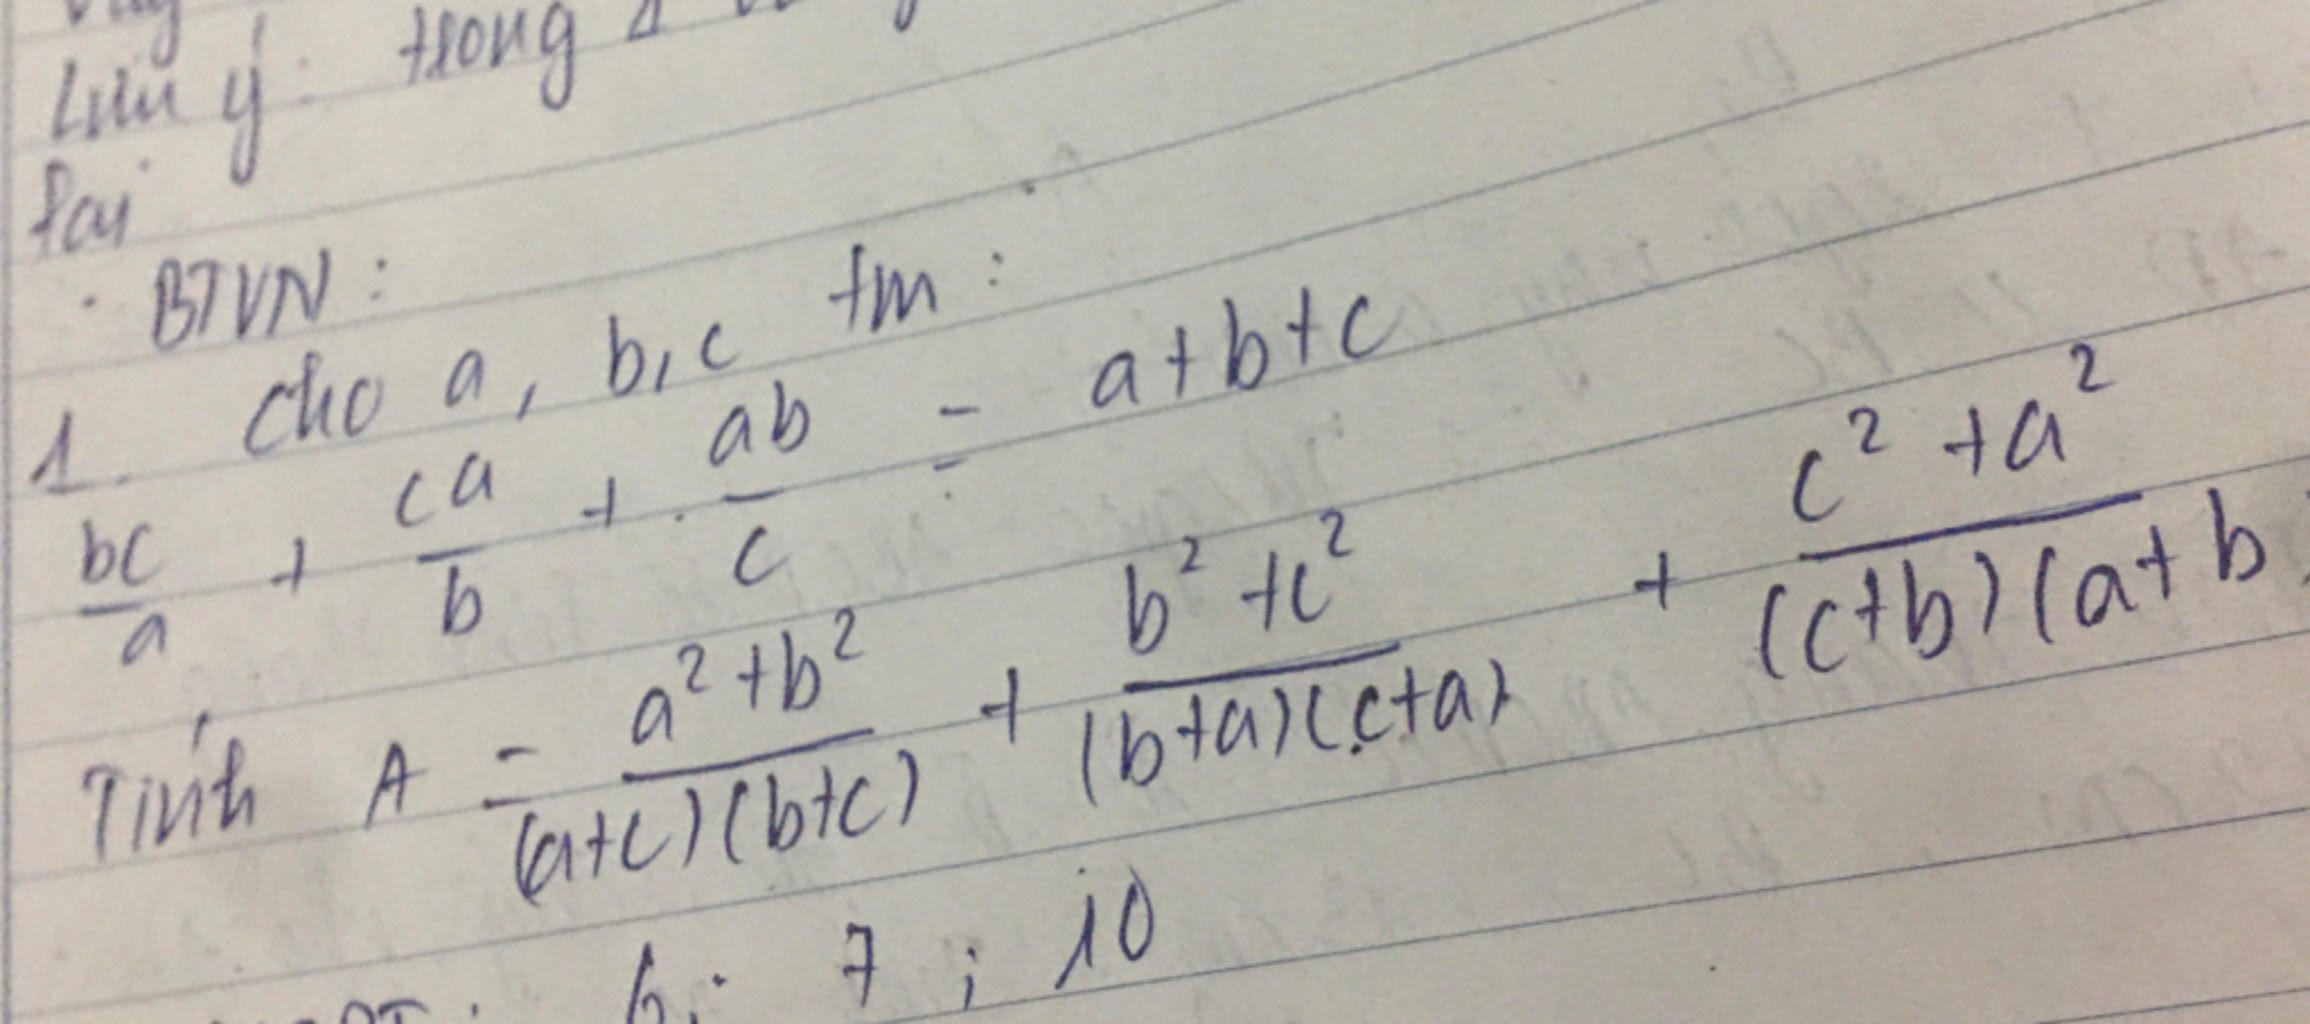 Lưu ý: trong Δ
BTVN:
1. Cho a, b, c tm:
bc/a + ca/b + ab/c = a+b+c
Tính A = a²+b²/(a+c)(b+c) + b²+c²/(b+a)(c+a) + c²+a²/(c+b)(a+b)
6; 7; 10